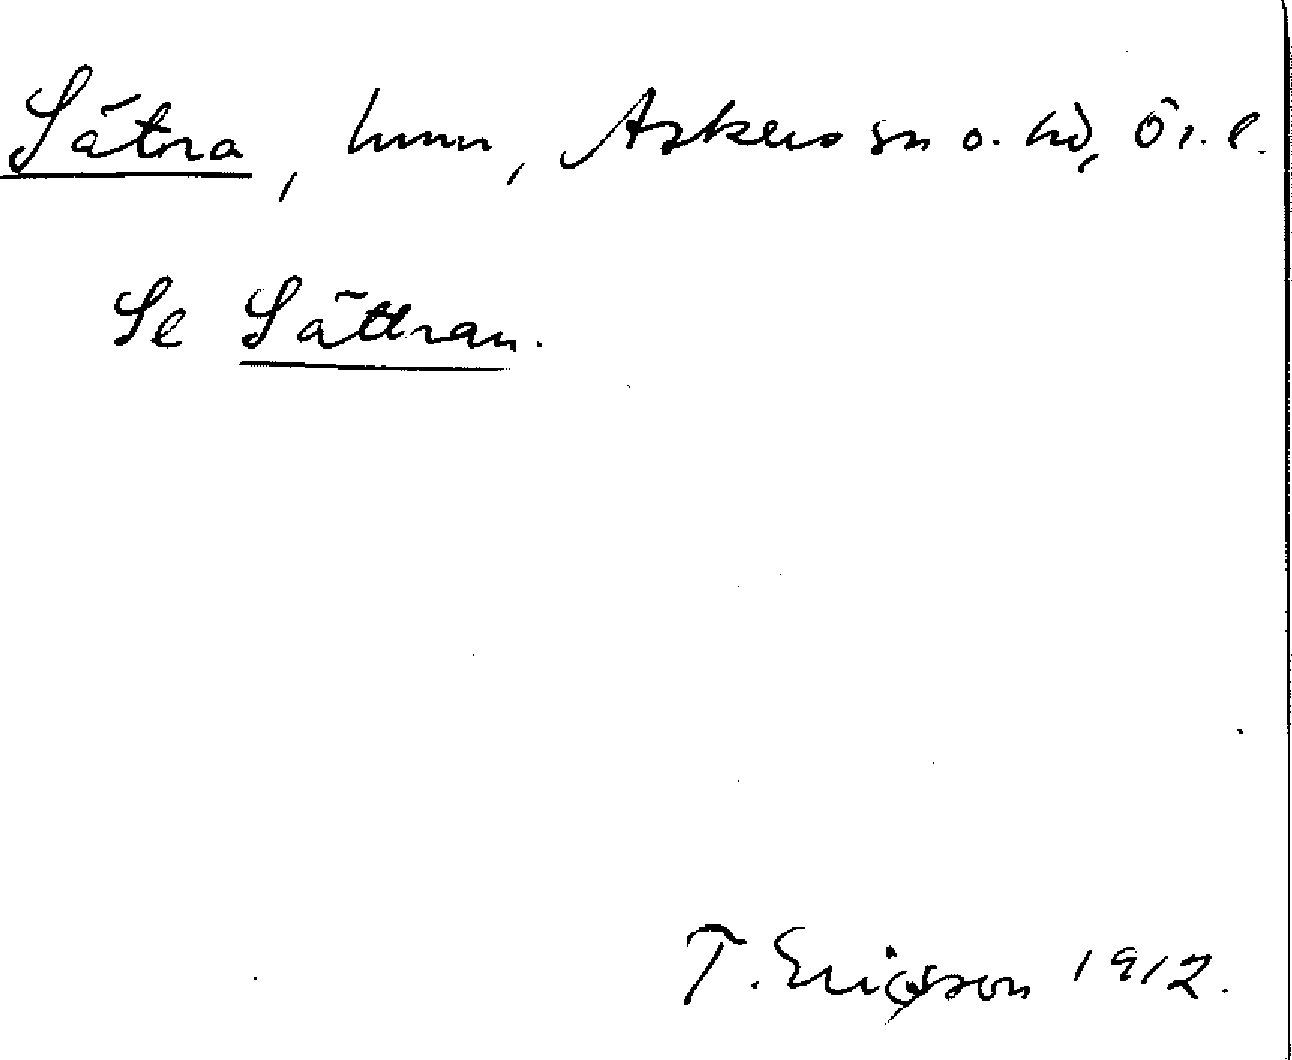 Sätra, hmn, Askers sn o. hd, Ör. l.
Se Sättran.
T. Ericsson 1912.